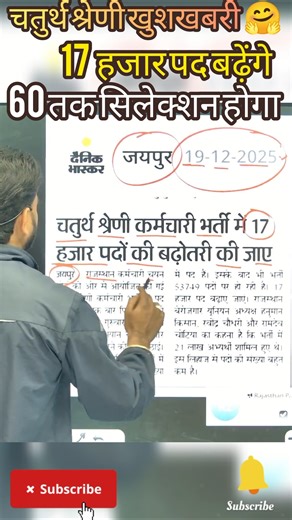 चतुर्थ श्रेणी खुशखबरी 🤗
17 हजार पद बढ़ेंगे
60 तक सिलेक्शन होगा
दैनिक
भास्कर
जयपुर
19-12-2025
चतुर्थ श्रेणी कर्मचारी भर्ती में 17
हजार पदों की बढ़ोतरी की जाए
जयपुर राजस्थान कर्मचारी चयन
की ओर से आयोजित की गई
कर्मचारी भर्ती
में पद है। इसके बाद भी भर्ती
53749 पदों पर हो रही है। 17
हजार पद बढ़ाए जाए। राजस्थान
बेरोजगार यूनियन अध्यक्ष हनुमान
किसान, रविन्द्र चौधरी और रामदेव
का कहना है कि भर्ती में
21 लाख अभ्यर्थी शामिल हुए थे।
इस लिहाज में पदों की संख्या बहुत
कम है।
Subscribe
Subscribe